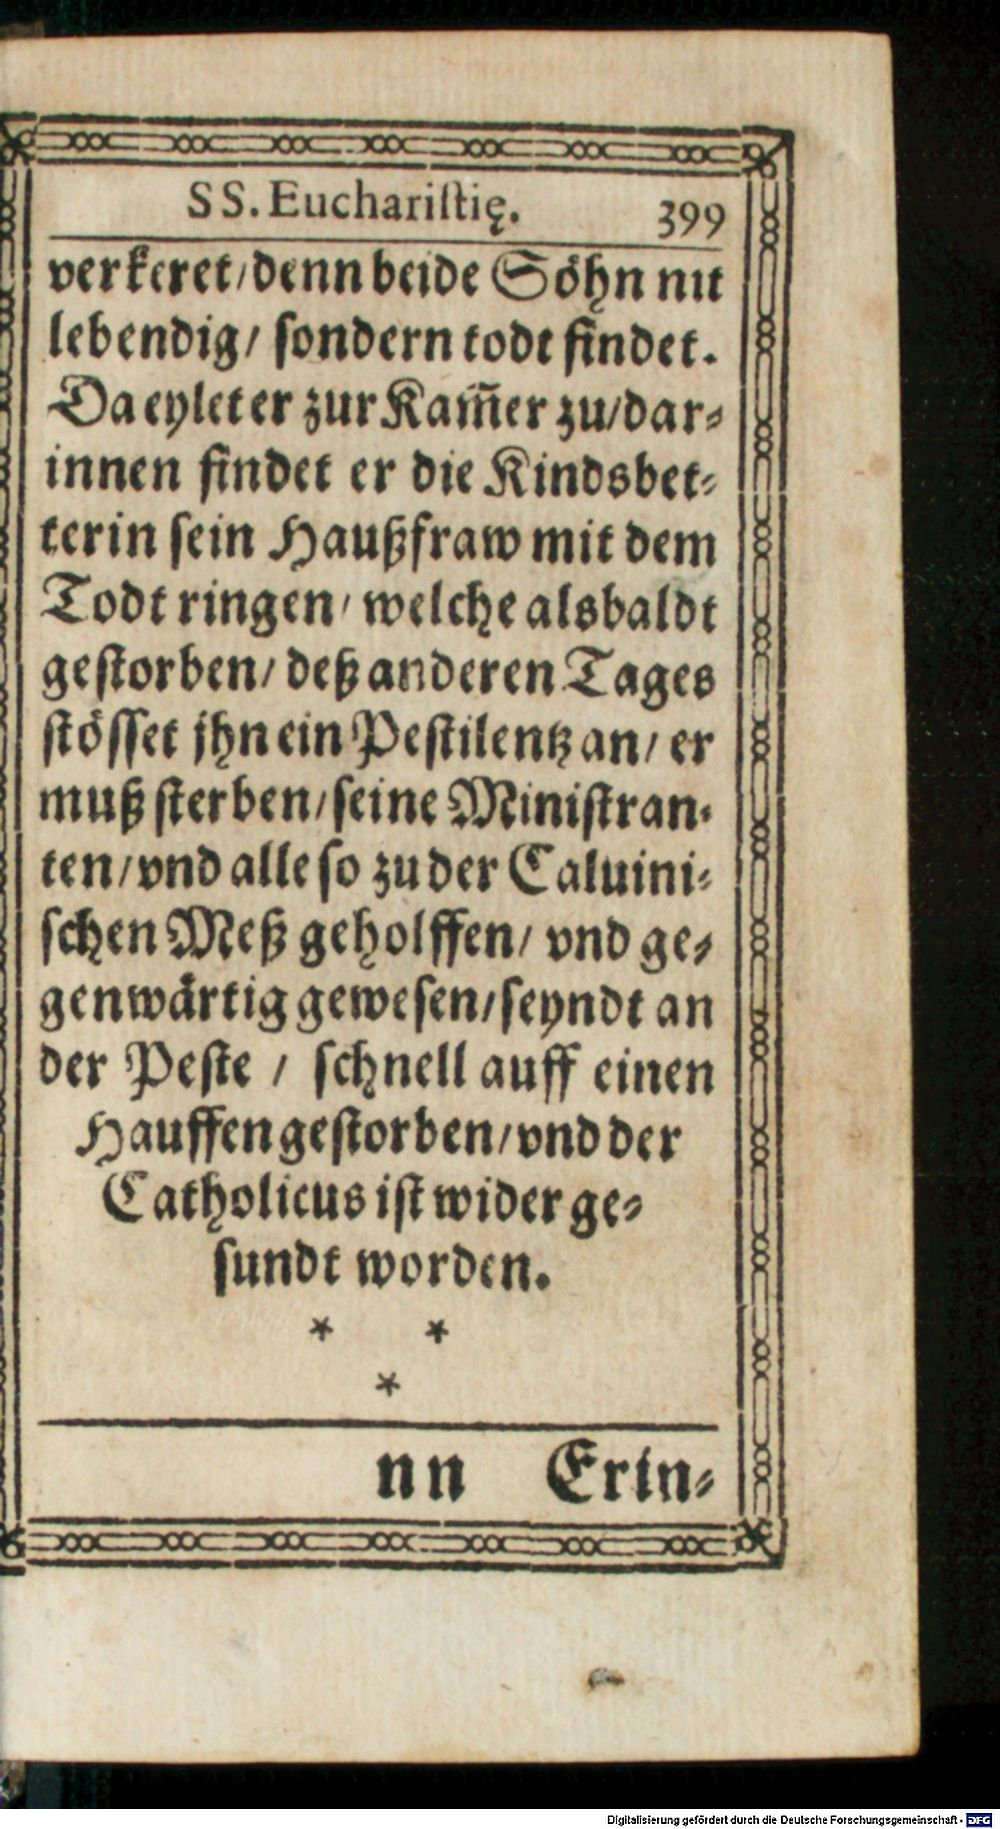 SS. Euchariſtię. 399
verkeret/ denn beide Söhn nit
lebendig/ ſondern todt findet.
Da eylet er zur Kam̃er zu/ dar-
innen findet er die Kindsbet-
terin ſein Haußfraw mit dem
Todt ringen/ welche alsbaldt
geſtorben/ deß anderen Tages
ſtöſſet jhn ein Peſtilentz an/ er
muß ſterben/ ſeine Miniſtran-
ten/ vnd alle ſo zu der Caluini-
ſchen Meß geholffen/ vnd ge-
genwärtig geweſen/ ſeyndt an
der Peſte / ſchnell auff einen
Hauffen geſtorben/ vnd der
Catholicus iſt wider ge-
ſundt worden.
* *
*
nn Erin-
Digitalisierung gefördert durch die Deutsche Forschungsgemeinschaft - DFG